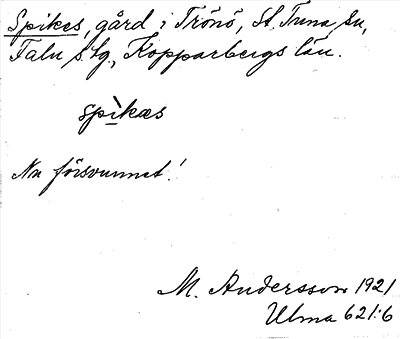 Spikes, gård i Trönö, St. Tuna sn,
Falu s:lg., Kopparbergs län.
spìkæs
Nu försvunnet!
M. Andersson 1921
Ulma 621:6